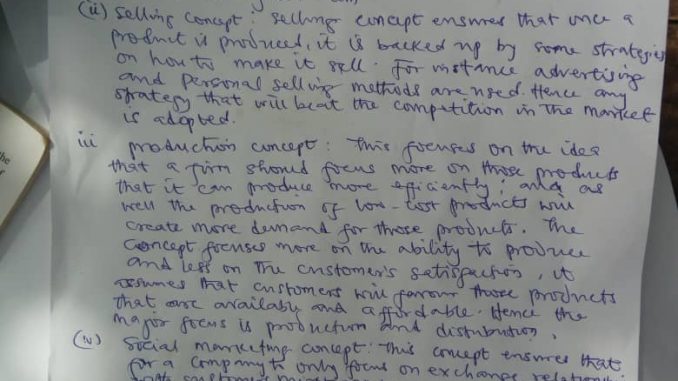 (ii) Selling concept: selling concept ensures that once a
product is produced, it is backed up by some strategies
on how to make it sell. For instance advertising
and personal selling methods are used. Hence any
strategy that will beat the competition in the market
is adopted.
iii production concept: This focuses on the idea
that a firm should focus more on those products
that it can produce more efficiently; and as
well the production of low-cost products will
create more demand for those products. The
concept focuses more on the ability to produce
and less on the customer's satisfaction, it
assumes that customers will favour those products
that are available and affordable. Hence the
major focus is production and distribution.
(iv) Social marketing concept: This concept ensures that
for a company to only focus on exchange
with customers